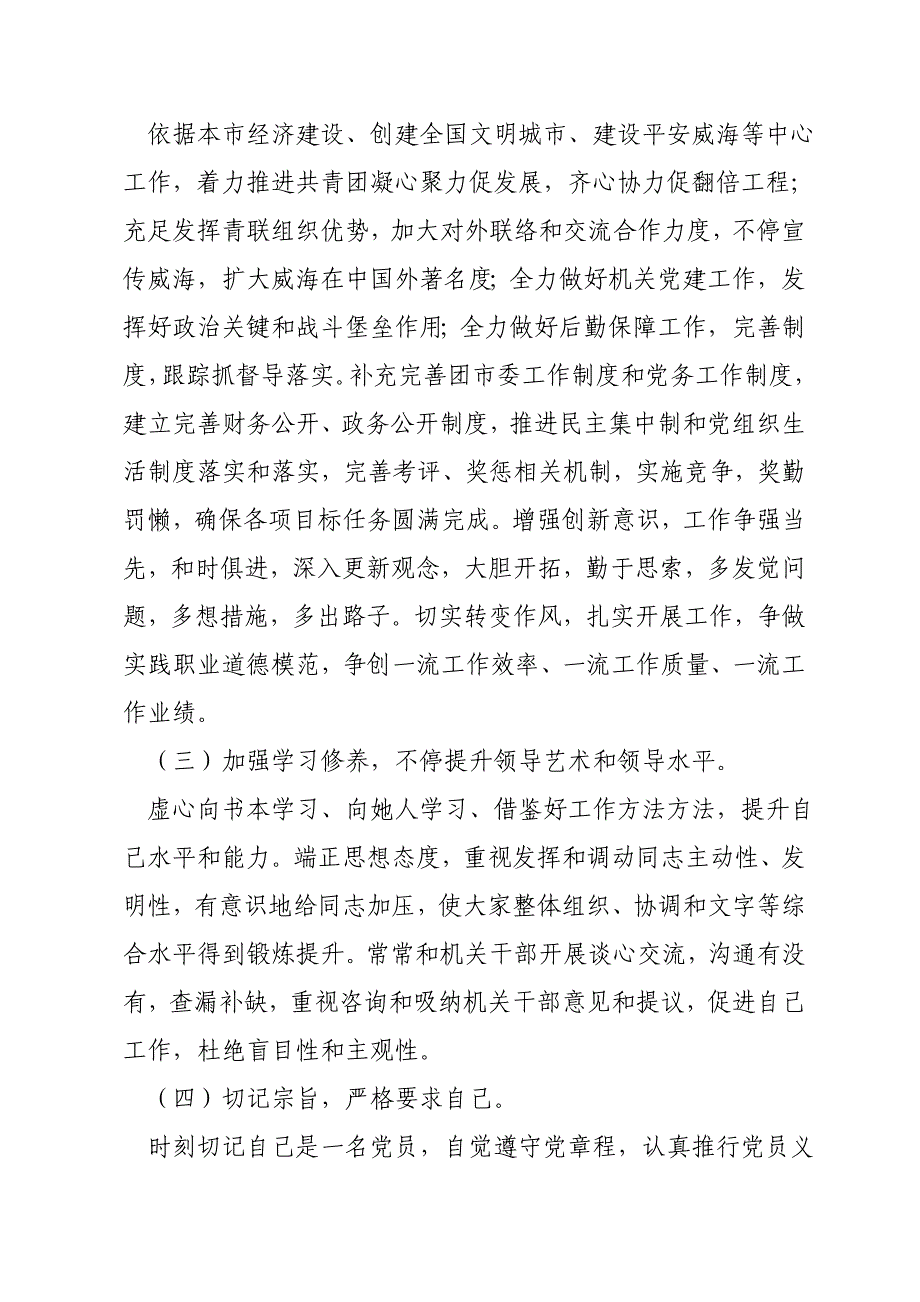 依据本市经济建设、创建全国文明城市、建设平安威海等中心
工作，着力推进共青团凝心聚力促发展，齐心协力促翻倍工程；
充足发挥青联组织优势，加大对外联络和交流合作力度，不停宣
传威海，扩大威海在中国外著名度；全力做好机关党建工作，发
挥好政治关键和战斗堡垒作用；全力做好后勤保障工作，完善制
度，跟踪抓督导落实。补充完善团市委工作制度和党务工作制度，
建立完善财务公开、政务公开制度，推进民主集中制和党组织生
活制度落实和落实，完善考评、奖惩相关机制，实施竞争，奖勤
罚懒，确保各项目标任务圆满完成。增强创新意识，工作争强当
先，和时俱进，深入更新观念，大胆开拓，勤于思索，多发觉问
题，多想措施，多出路子。切实转变作风，扎实开展工作，争做
实践职业道德模范，争创一流工作效率、一流工作质量、一流工
作业绩。
（三）加强学习修养，不停提升领导艺术和领导水平。
虚心向书本学习、向她人学习、借鉴好工作方法方法，提升自
己水平和能力。端正思想态度，重视发挥和调动同志主动性、发
明性，有意识地给同志加压，使大家整体组织、协调和文字等综
合水平得到锻炼提升。常常和机关干部开展谈心交流，沟通有没
有，查漏补缺，重视咨询和吸纳机关干部意见和提议，促进自己
工作，杜绝盲目性和主观性。
（四）切记宗旨，严格要求自己。
时刻切记自己是一名党员，自觉遵守党章程，认真推行党员义